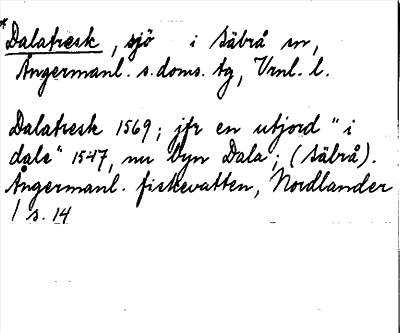 *Dalatresk, sjö i Säbrå sn,
Ångermanl. s. doms. tg, Vrnl. l.
Dalatresk 1569; jfr en utjord "i
dale" 1547, nu byn Dala; (Säbrå).
Ångermanl. fiskevatten, Nordlander
1 s. 14